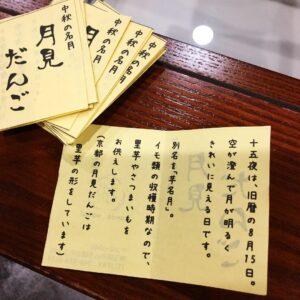 中秋の名月
月見
だんご
中秋の名月
中秋の名月
中秋の名月
十五夜は、旧暦の8月15日。
空が澄んで月が明るく
きれいに見える日です。
別名を「芋名月」。
イモ類の収穫時期なので、
里芋やさつまいもを
お供えします。
(京都の月見だんごは
里芋の形をしています)